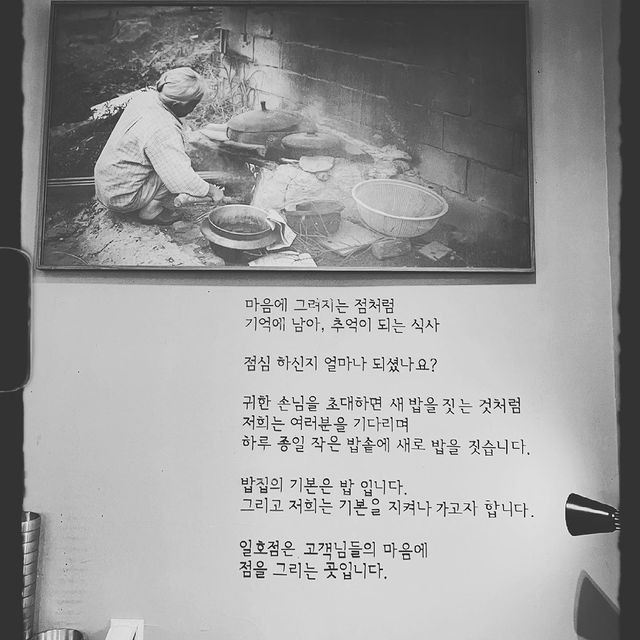 마음에 그려지는 점처럼
기억에 남아, 추억이 되는 식사
점심 하신지 얼마나 되셨나요?
귀한 손님을 초대하면 새 밥을 짓는 것처럼
저희는 여러분을 기다리며
하루 종일 작은 밥솥에 새로 밥을 짓습니다.
밥집의 기본은 밥 입니다.
그리고 저희는 기본을 지켜나가고자 합니다.
일호점은 고객님들의 마음에
점을 그리는 곳입니다.